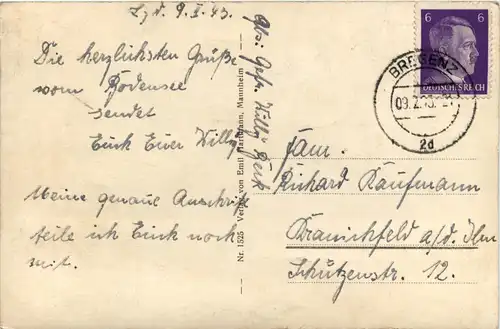 d. 9.2.43.
Die herzlichsten Grüße
vom Bodensee
sendet
Euch Euer Willy
Meine genaue Anschrift
teile ich Euch noch
mit.
Abs: Gefr. Willy
Nr. 1525 Verlag von Emil Hartmann, Mannheim
6 6
DEUTSCHES REICH
BREGENZ
09.2.43
2d
Fam.
Richard Kaufmann
Kranichfeld a/d. Ilm
Schützenstr. 12.